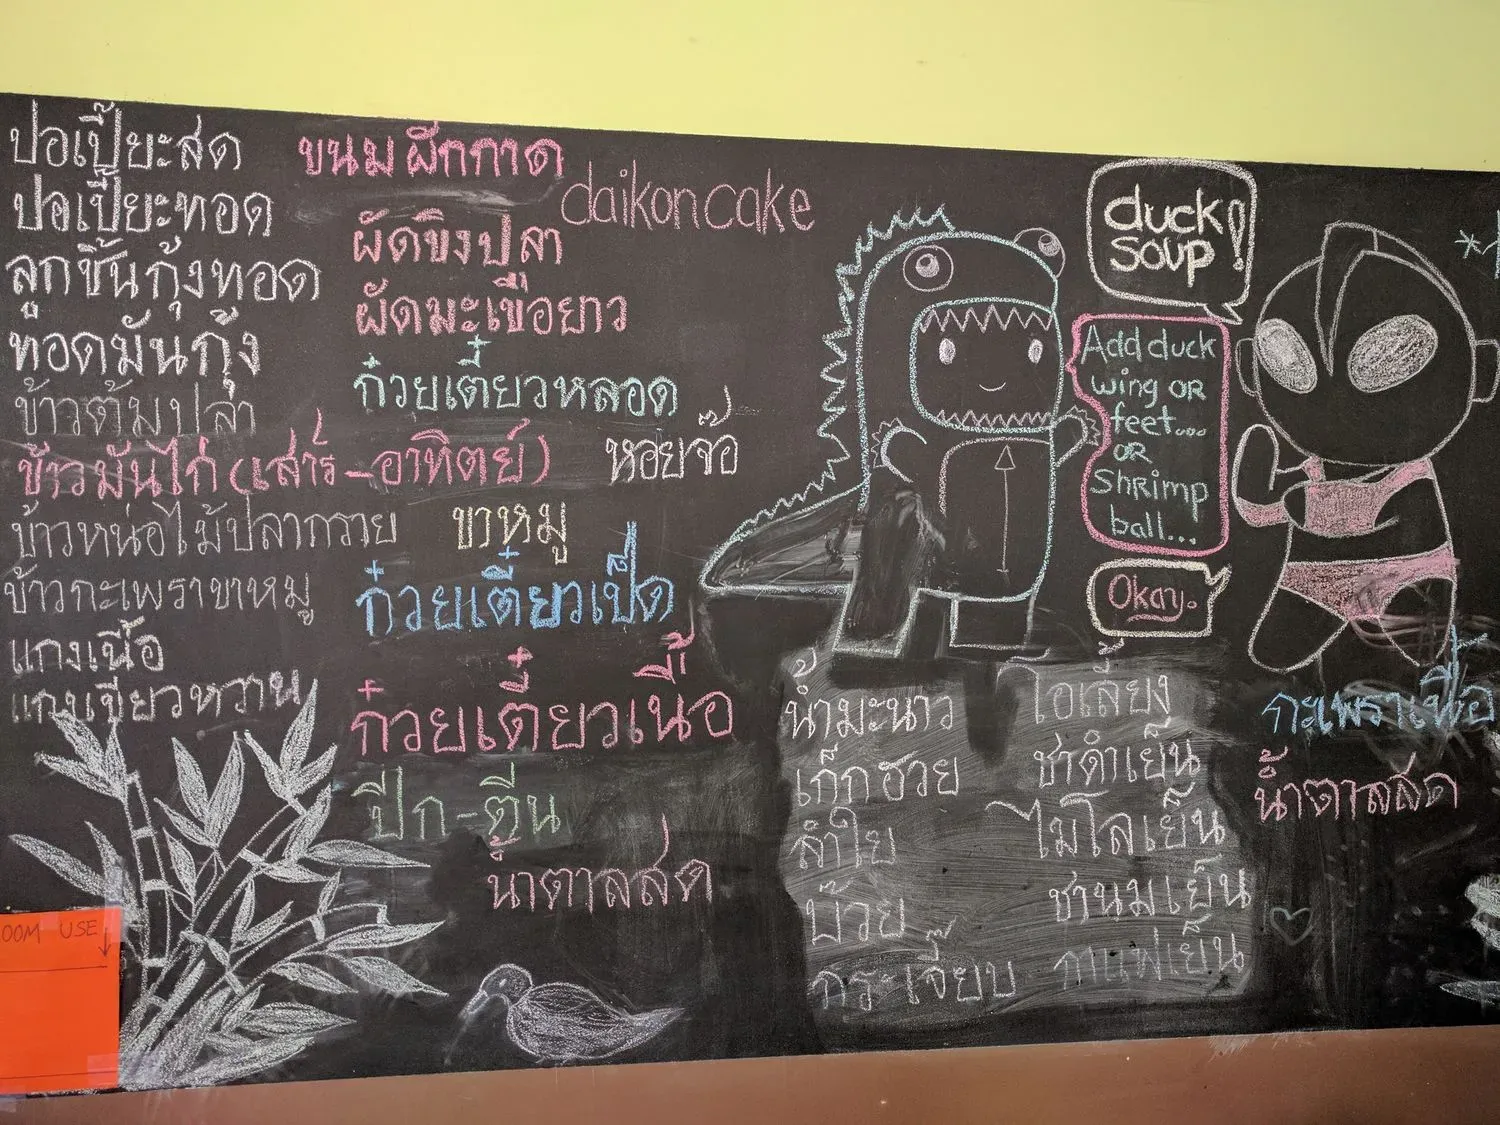 ปอเปี๊ยะสด
ปอเปี๊ยะทอด
ลูกชิ้นกุ้งทอด
ทอดมันกุ้ง
ข้าวต้มปลา
ข้าวมันไก่ (เสาร์-อาทิตย์)
ข้าวหน่อไม้ปลากราย
ข้าวกะเพราขาหมู
แกงเนื้อ
แกงเขียวหวาน
ขนมผักกาด
daikon cake
ผัดขิงปลา
ผัดมะเขือยาว
ก๋วยเตี๋ยวหลอด
หอยจ๊อ
ขาหมู
ก๋วยเตี๋ยวเป็ด
ก๋วยเตี๋ยวเนื้อ
ปีก-ตีน
น้ำตาลสด
duck
soup!
Add duck
wing OR
feet....
OR
Shrimp
ball...
Okay.
น้ำมะนาว
เก็กฮวย
ลำใย
บ๊วย
กระเจี๊ยบ
โอเลี้ยง
ชาดำเย็น
ไมโลเย็น
ชานมเย็น
กาแฟเย็น
กะเพราเนื้อ
น้ำตาลสด
OOM USE